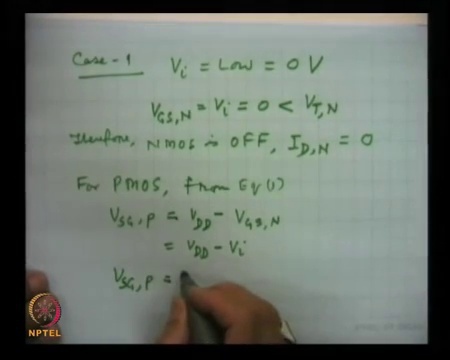 Case-1 Vi = Low = 0 V
VGS,N = Vi = 0 < VT,N
Therefore, NMOS is OFF, ID,N = 0
For PMOS, from Eq(1)
VSG,P = VDD - VGS,N
= VDD - Vi
VSG,P =
NPTEL